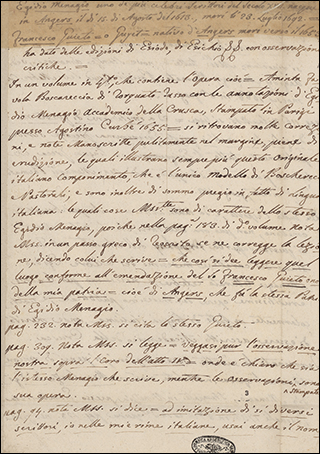 Egidio Menagio uno de' più celebri Scrittori del Secolo
in Angers il dì 15. di Agosto del 1613. morì li 23. Luglio 1692.
Francesco Guieto = o Guyet = nativo d'Angers morì verso il 165
ha dato delle edizioni di Esiodo, di Esichio &c. con osservazioni
critiche. —
In un volume in 4.º che contiene l'opera cioè = Aminta Fa
vola Boscareccia di Torquato Tasso con le annotazioni d'Eg
idio Menagio Accademico della Crusca, Stampata in Parigi
presso Agostino Curbé 1655 = si ritrovano molte correzio
ni, e note Manoscritte pulitamente nel margine, piene di
erudizione, le quali illustrano sempre più questo originale
italiano Componimento, che è l'unico modello di Boscherecce
Pastorali; e sono inoltre di sommo pregio in fatto di lingua
italiana: le quali cose Mss.tte sono di carattere dello stesso
Egidio Menagio, poiché nella pag. 183. di d.º volume nota
Mss. in un passo greco di Teocrito, se ne corregge la lezio
ne, dicendo colui che scrive = che così si dee leggere quel
luogo conforme all'emendazione del S. Francesco Guieto
della mia patria = cioè di Angers, che fu la stessa Patria
di Egidio Menagio.
pag. 232. nota Mss. si cita lo stesso Guieto.
pag. 309. Nota Mss. si legge = Veggasi però l'osservazione
nostra sopra il Coro dell'atto Iº. = onde è chiaro che sia
l'istesso Menagio che scrive, mentre le osservazioni sono
sua opera. stampate
pag. 94. note Mss. si dice = ad imitazione di sì diversi
scrittori, io nelle mie rime italiane, usai anche il nom